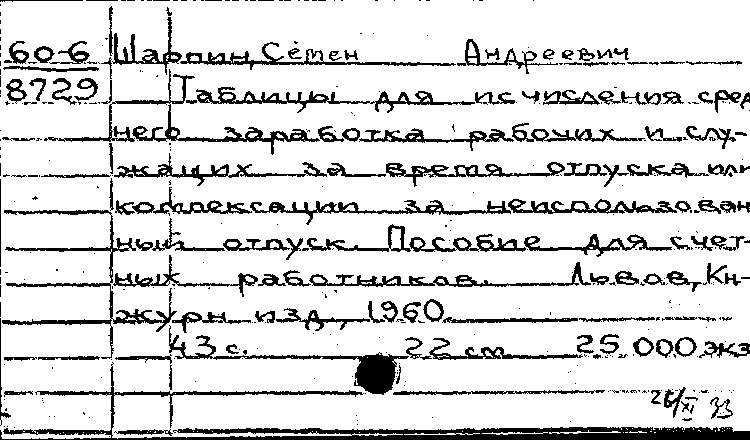 60-6 Шарпин, Семен Андреевич
8729 Таблицы для исчисления сред
него заработка рабочих и слу-
жащих за время отпуска или
компексации за неиспользован
ный отпуск. Пособие для счет-
ных работников. Львов, Кн-
журн изд, 1960.
43 с. 22 см 25.000 экз
XI 33